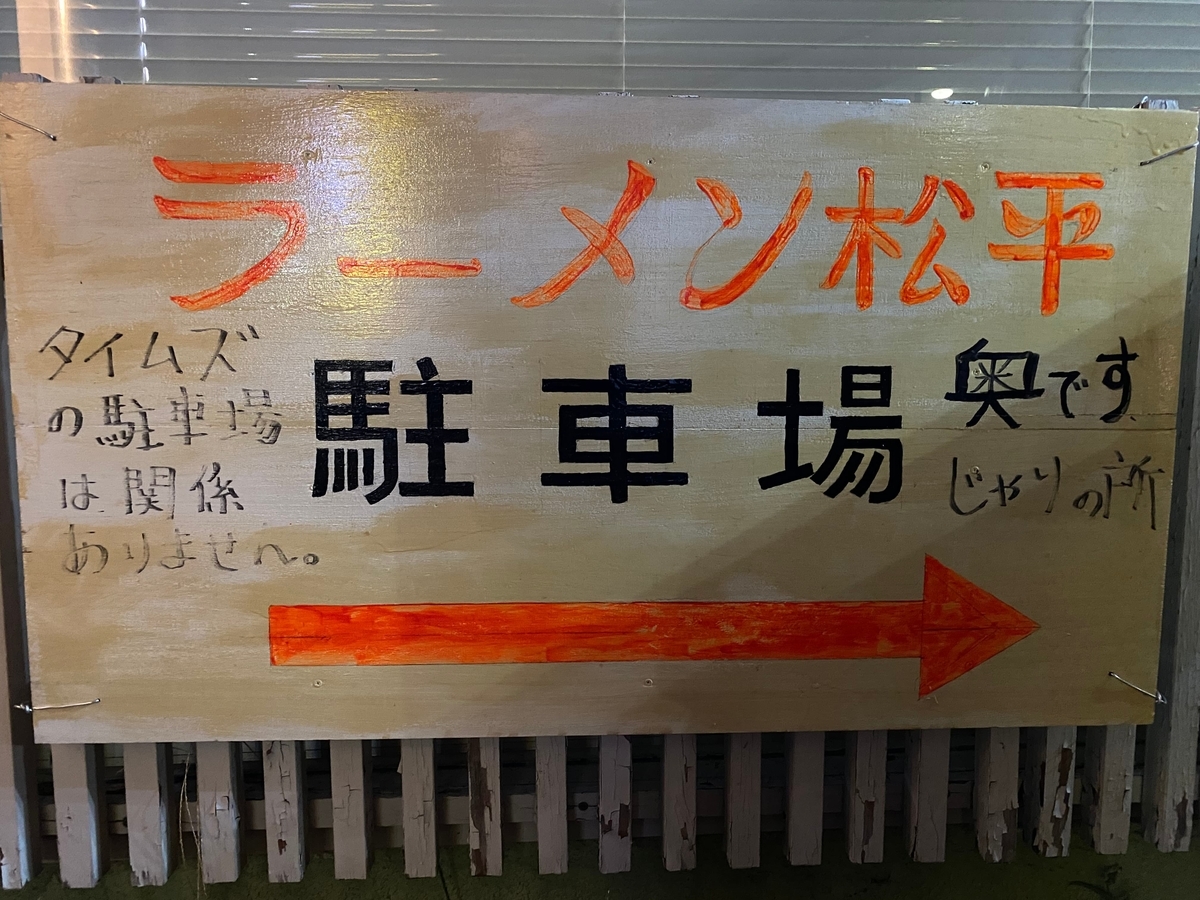 ラーメン松平
タイムズ
の駐車場
は関係
ありません。
駐車場
奥です
じゃりの所